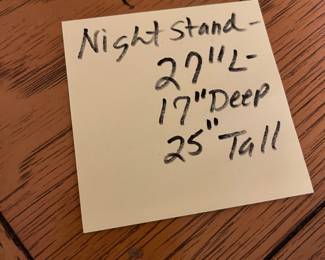 Night Stand-
27"L-
17"Deep
25" Tall